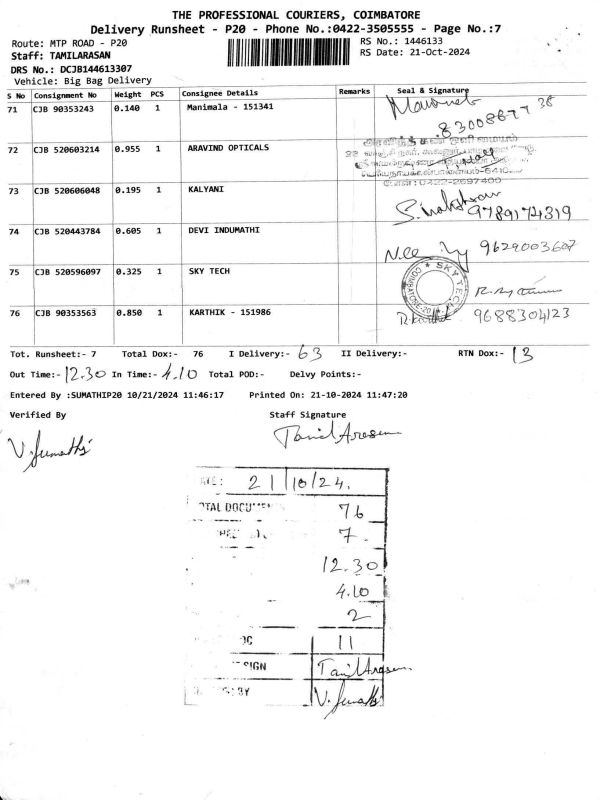 THE PROFESSIONAL COURIERS, COIMBATORE
Delivery Runsheet - P20 - Phone No.:0422-3505555 - Page No.:7
Route: MTP ROAD - P20
RS No.: 1446133
Staff: TAMILARASAN
RS Date: 21-Oct-2024
DRS No.: DCJB144613307
Vehicle: Big Bag Delivery
S No Consignment No Weight PCS Consignee Details Remarks Seal & Signature
71 CJB 90353243 0.140 1 Manimala - 151341
72 CJB 520603214 0.955 1 ARAVIND OPTICALS
73 CJB 520606048 0.195 1 KALYANI
9789174319
74 CJB 520443784 0.605 1 DEVI INDUMATHI
9629003607
75 CJB 520596097 0.325 1 SKY TECH
SKY TECH
COIMBATORE-20
76 CJB 90353563 0.850 1 KARTHIK - 151986
9688304123
Tot. Runsheet:- 7 Total Dox:- 76 I Delivery:- 63 II Delivery:- RTN Dox:- 13
Out Time:- 12.30 In Time:- 4.10 Total POD:- Delvy Points:-
Entered By :SUMATHIP20 10/21/2024 11:46:17 Printed On: 21-10-2024 11:47:20
Verified By Staff Signature
V. Sumathi
Tamil Arasan
21/10/24.
76
7
12.30
4.10
2
11
SIGN Tamil Arasan
BY V. Sumathi